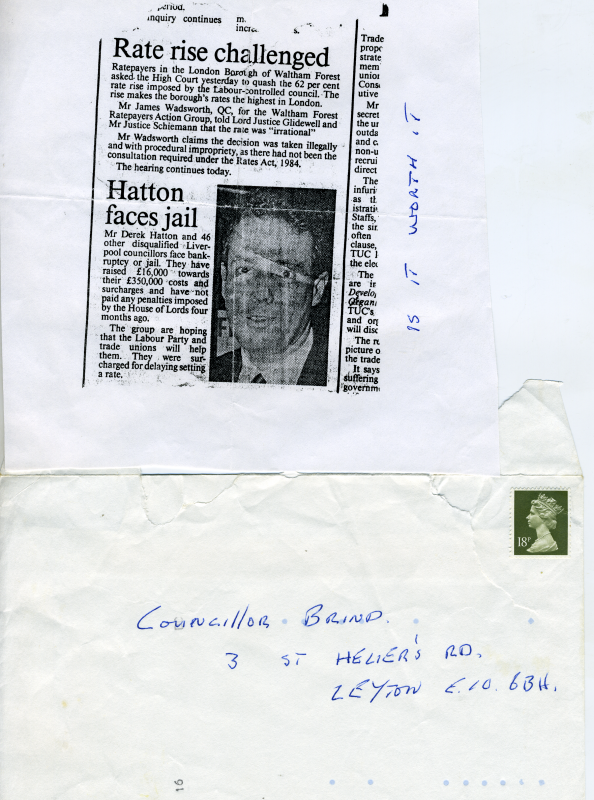 period.
inquiry continues
m.
incre
s.
Rate rise challenged
Ratepayers in the London Borough of Waltham Forest
asked the High Court yesterday to quash the 62 per cent
rate rise imposed by the Labour-controlled council. The
rise makes the borough's rates the highest in London.
Mr James Wadsworth, QC, for the Waltham Forest
Ratepayers Action Group, told Lord Justice Glidewell and
Mr Justice Schiemann that the rate was "irrational"
Mr Wadsworth claims the decision was taken illegally
and with procedural impropriety, as there had not been the
consultation required under the Rates Act, 1984.
The hearing continues today.
Hatton
faces jail
Mr Derek Hatton and 46
other disqualified Liver-
pool councillors face bank-
ruptcy or jail. They have
raised £16,000 towards
their £350,000 costs and
surcharges and have not
paid any penalties imposed
by the House of Lords four
months ago.
The group are hoping
that the Labour Party and
trade unions will help
them. They were sur-
charged for delaying setting
a rate.
Trade
propo
strate
mem
union
Cons
utive
Mr
secret
the ur
outda
and c
non-u
recrui
direct
The
infuri
as th
istrati
Staffs,
the sir
often
clause,
TUC I
the elec
The
are ir
Develop
Organi
TUC's
and org
will disc
The ru
picture o
the trade
It says
suffering
governm
IS IT WORTH IT
18P
Councillor Brind.
3 ST HELIER'S RD.
LEYTON E.10. 6BH.
16